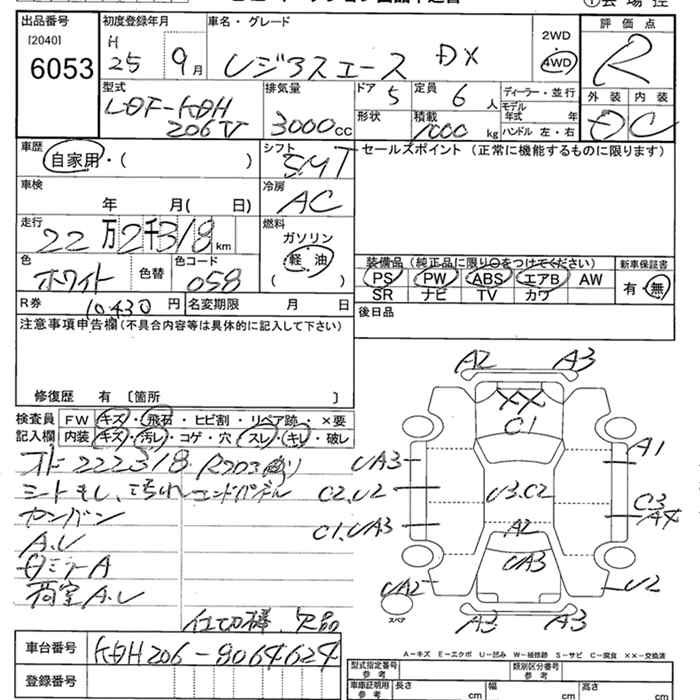 出品番号 初度登録年月 車名・グレード 2WD 評価点
[2040] H 4WD
6053 25 9月 レジアスエース DX R
型式 排気量 ドア 5 定員 6 人 ディーラー・並行 外装 内装
LDF-KDH モデル年式 年
206V 3000cc 形状 積載 1000 kg ハンドル 左・右 C
車歴 自家用・( ) シフト 5MT セールスポイント(正常に機能するものに限ります)
車検 年 月( 日) 冷房 AC
走行 22万2千318km 燃料
ガソリン
軽油
( )
色 ホワイト 色替 色コード 058
装備品(純正品に限り○をつけてください) 新車保証書
PS PW ABS エアB AW 有・無
SR ナビ TV カワ
R券 10430円 名変期限 月 日 後日品
注意事項申告欄(不具合内容等は具体的に記入して下さい)
修復歴 有 〔箇所 〕
検査員 FW キズ・飛石・ヒビ割・リペア跡・×要
記入欄 内装 キズ・汚レ・コゲ・穴・スレ・キレ・破レ
222318
シートもし、汚れ エンドパネル
カンバン
A.U
A
荷室A.U
仕切棒 欠品
A2 A3
XX
C1
UA3 A1
C2.U2 U3.C2 C3
A4
C1.UA3 A2
UA3
UA2 U2
スペア A3 A3
A-キズ E-エクボ U-凹み W-補修跡 S-サビ C-腐食 ××-交換済
車台番号 KDH206-8064624
登録番号
型式指定番号 参考 類別区分番号 参考
車庫証明用 参考 長さ cm 幅 cm 高さ cm